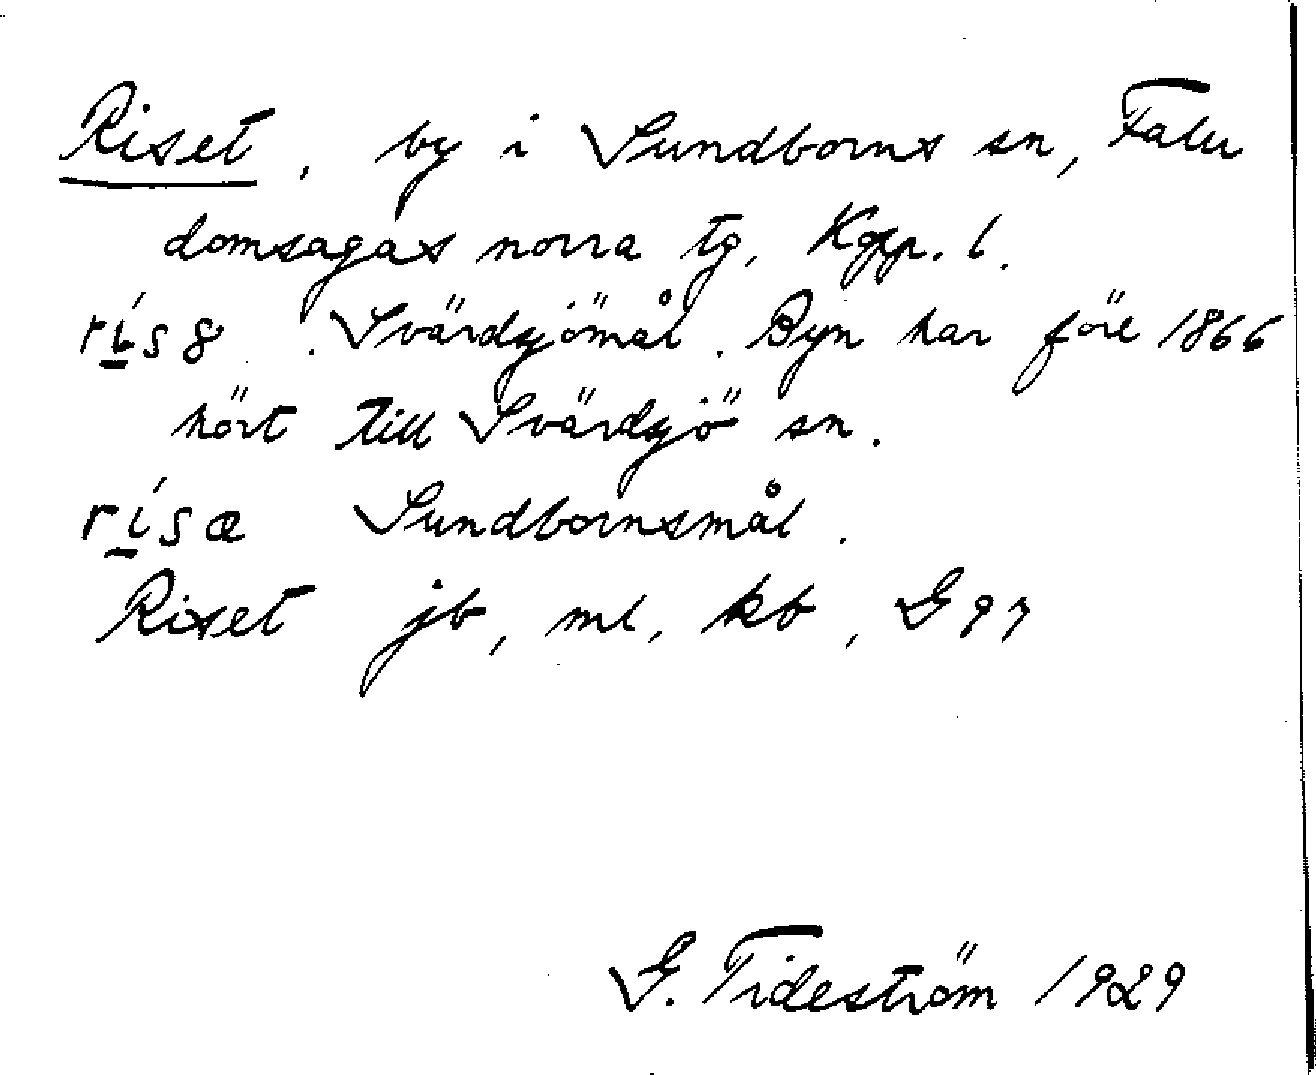 Riset, by i Sundborns sn, Falu
domsagas norra tg, Kopp. l.
rí̱s8 . Svärdsjömål. Byn har före 1866
hört till Svärdsjö sn.
rí̱sæ Sundbornsmål.
Riset jb, ml, kb, G97
G. Tideström 1929